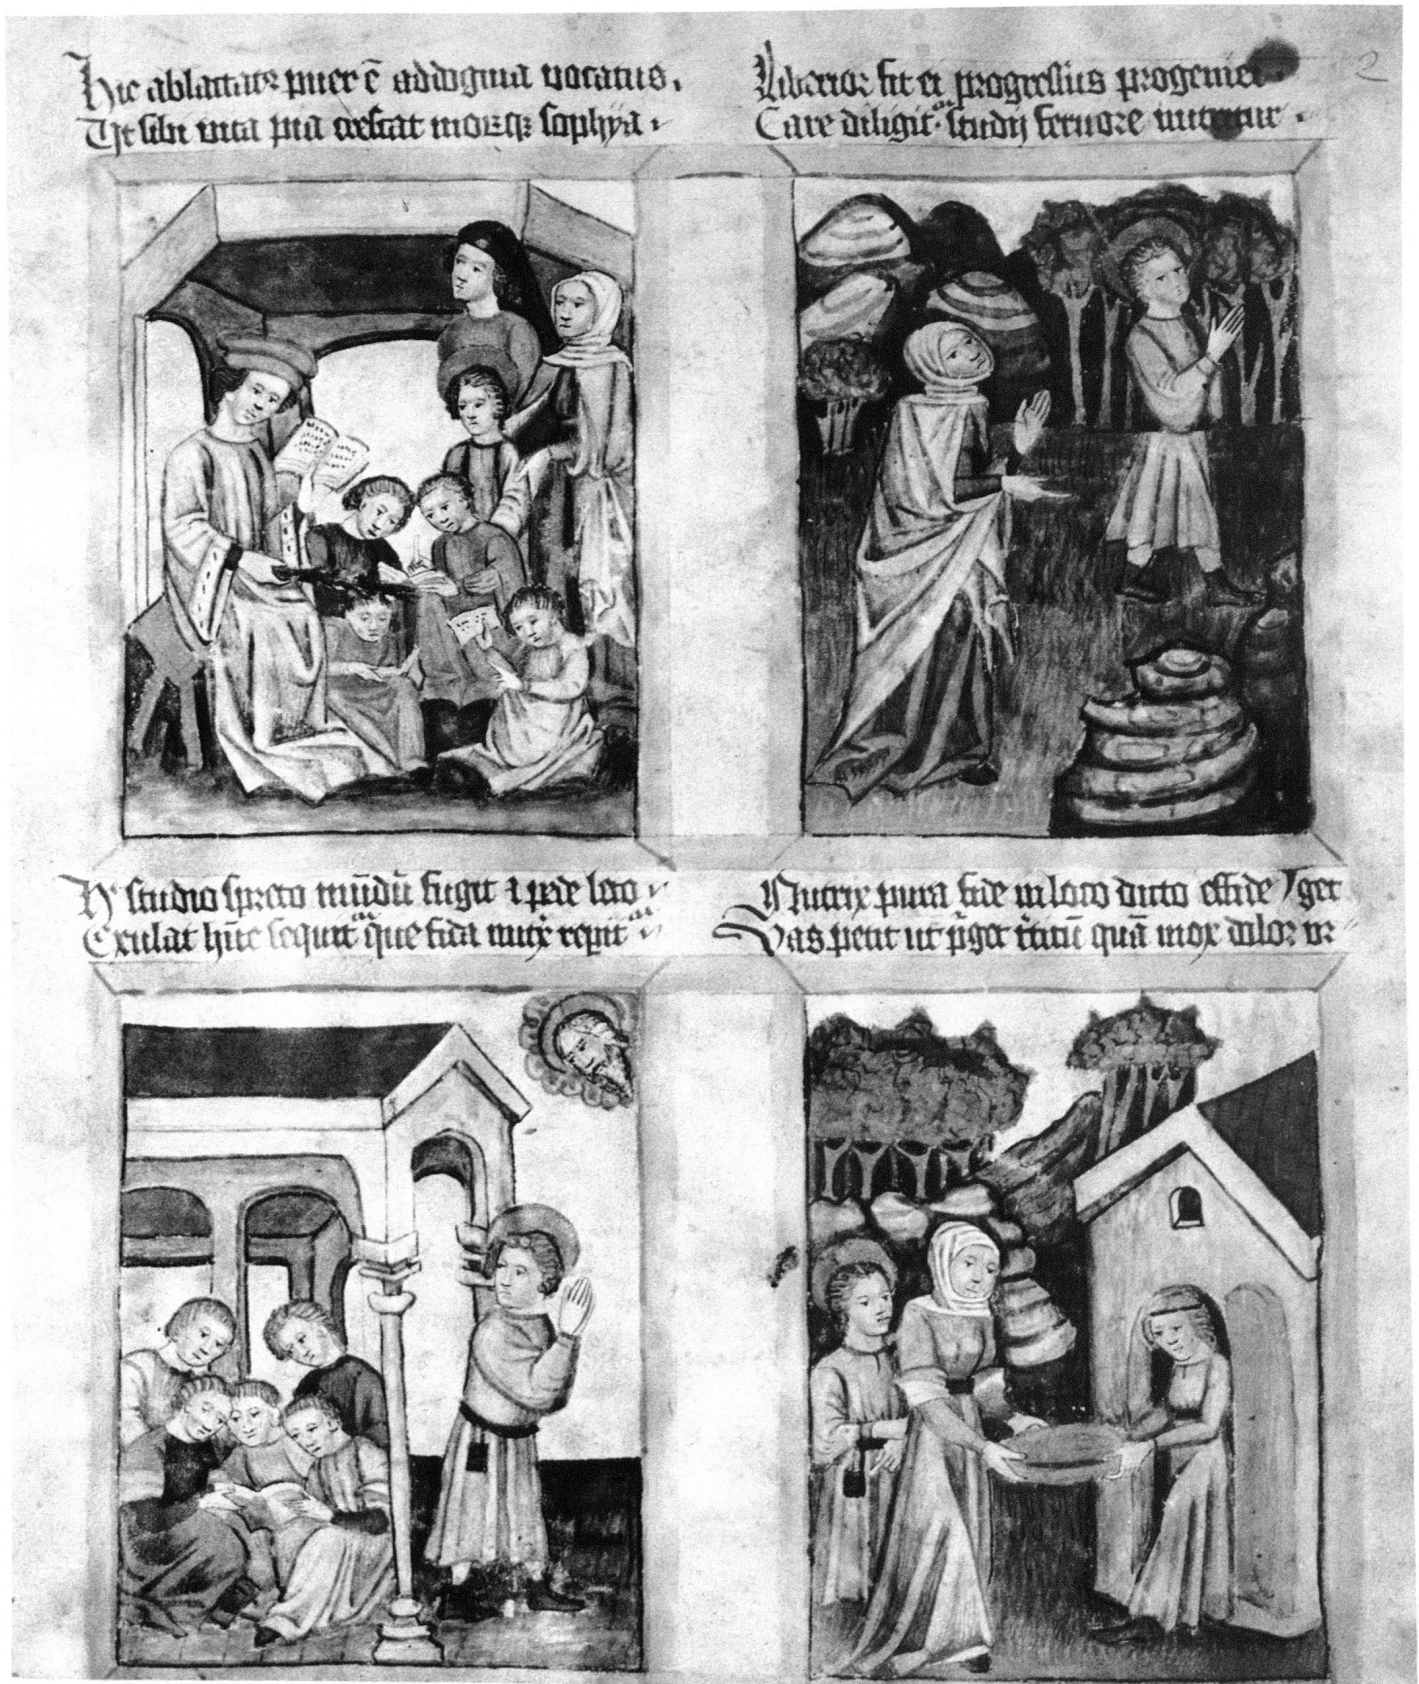 Hic ablactatr puer ē ad dogma vocatus.
Ut sibi vita pia crescat morūq; sophÿa
Liberior fit et progressus progeniei
Care diligit. studÿ fervore nutritur
H' studio spreto mūdū fugit ⁊ pede leto
Exulat hūc sequit que fida nutrix
Nutrix pura fide in loco dicto effide
Vas petit ut quā mox
2